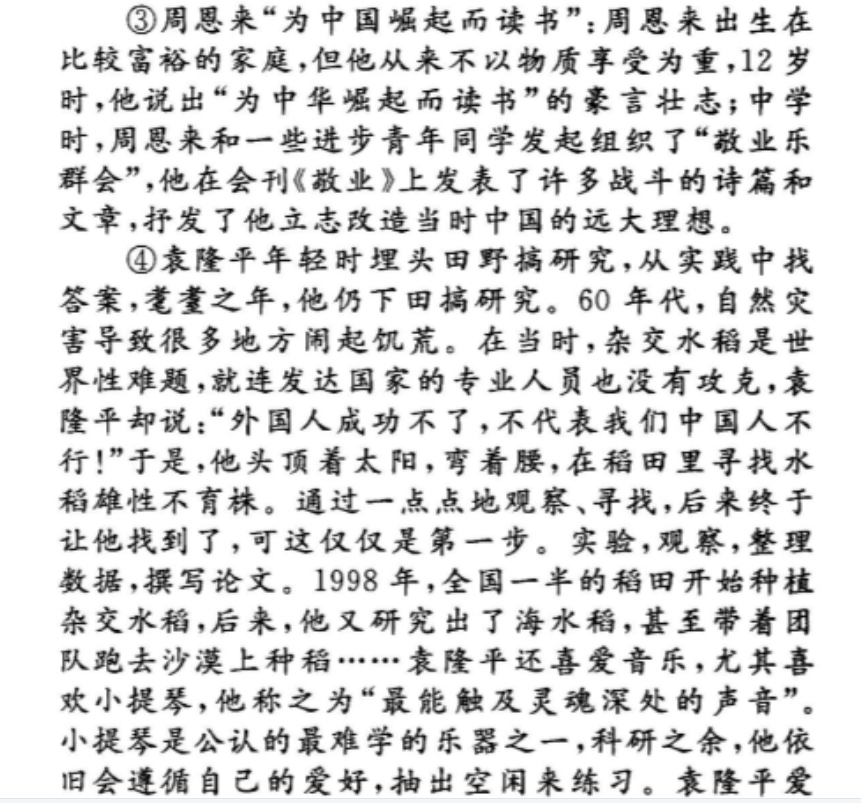 ③周恩来“为中国崛起而读书”:周恩来出生在
比较富裕的家庭,但他从来不以物质享受为重,12 岁
时,他说出“为中华崛起而读书”的豪言壮志;中学
时,周恩来和一些进步青年同学发起组织了“敬业乐
群会”,他在会刊《敬业》上发表了许多战斗的诗篇和
文章,抒发了他立志改造当时中国的远大理想。
④袁隆平年轻时埋头田野搞研究,从实践中找
答案,耄耋之年,他仍下田搞研究。60 年代,自然灾
害导致很多地方闹起饥荒。在当时,杂交水稻是世
界性难题,就连发达国家的专业人员也没有攻克,袁
隆平却说:“外国人成功不了,不代表我们中国人不
行!”于是,他头顶着太阳,弯着腰,在稻田里寻找水
稻雄性不育株。通过一点点地观察、寻找,后来终于
让他找到了,可这仅仅是第一步。实验,观察,整理
数据,撰写论文。1998 年,全国一半的稻田开始种植
杂交水稻,后来,他又研究出了海水稻,甚至带着团
队跑去沙漠上种稻……袁隆平还喜爱音乐,尤其喜
欢小提琴,他称之为“最能触及灵魂深处的声音”。
小提琴是公认的最难学的乐器之一,科研之余,他依
旧会遵循自己的爱好,抽出空闲来练习。袁隆平爱